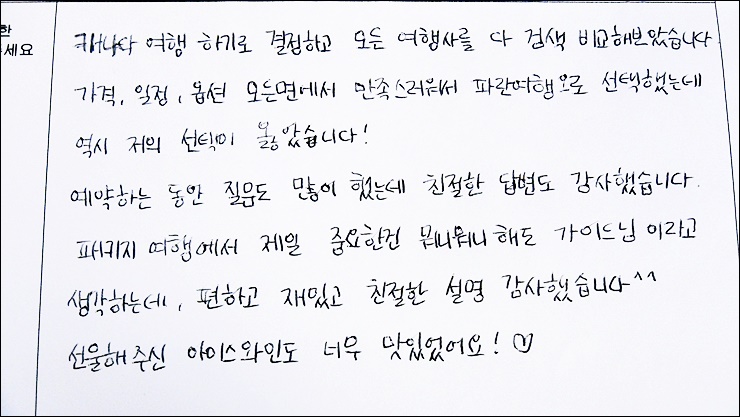 한
세요
캐나다 여행 하기로 결정하고 모든 여행사를 다 검색 비교해보았습니다
가격, 일정, 옵션 모든면에서 만족스러워서 파란여행으로 선택했는데
역시 저의 선택이 옳았습니다!
예약하는 동안 질문도 많이 했는데 친절한 답변도 감사했습니다.
패키지 여행에서 제일 중요한건 뭐니뭐니해도 가이드님 이라고
생각하는데, 편하고 재밌고 친절한 설명 감사했습니다^^
선물해주신 아이스와인도 너무 맛있었어요! ♡